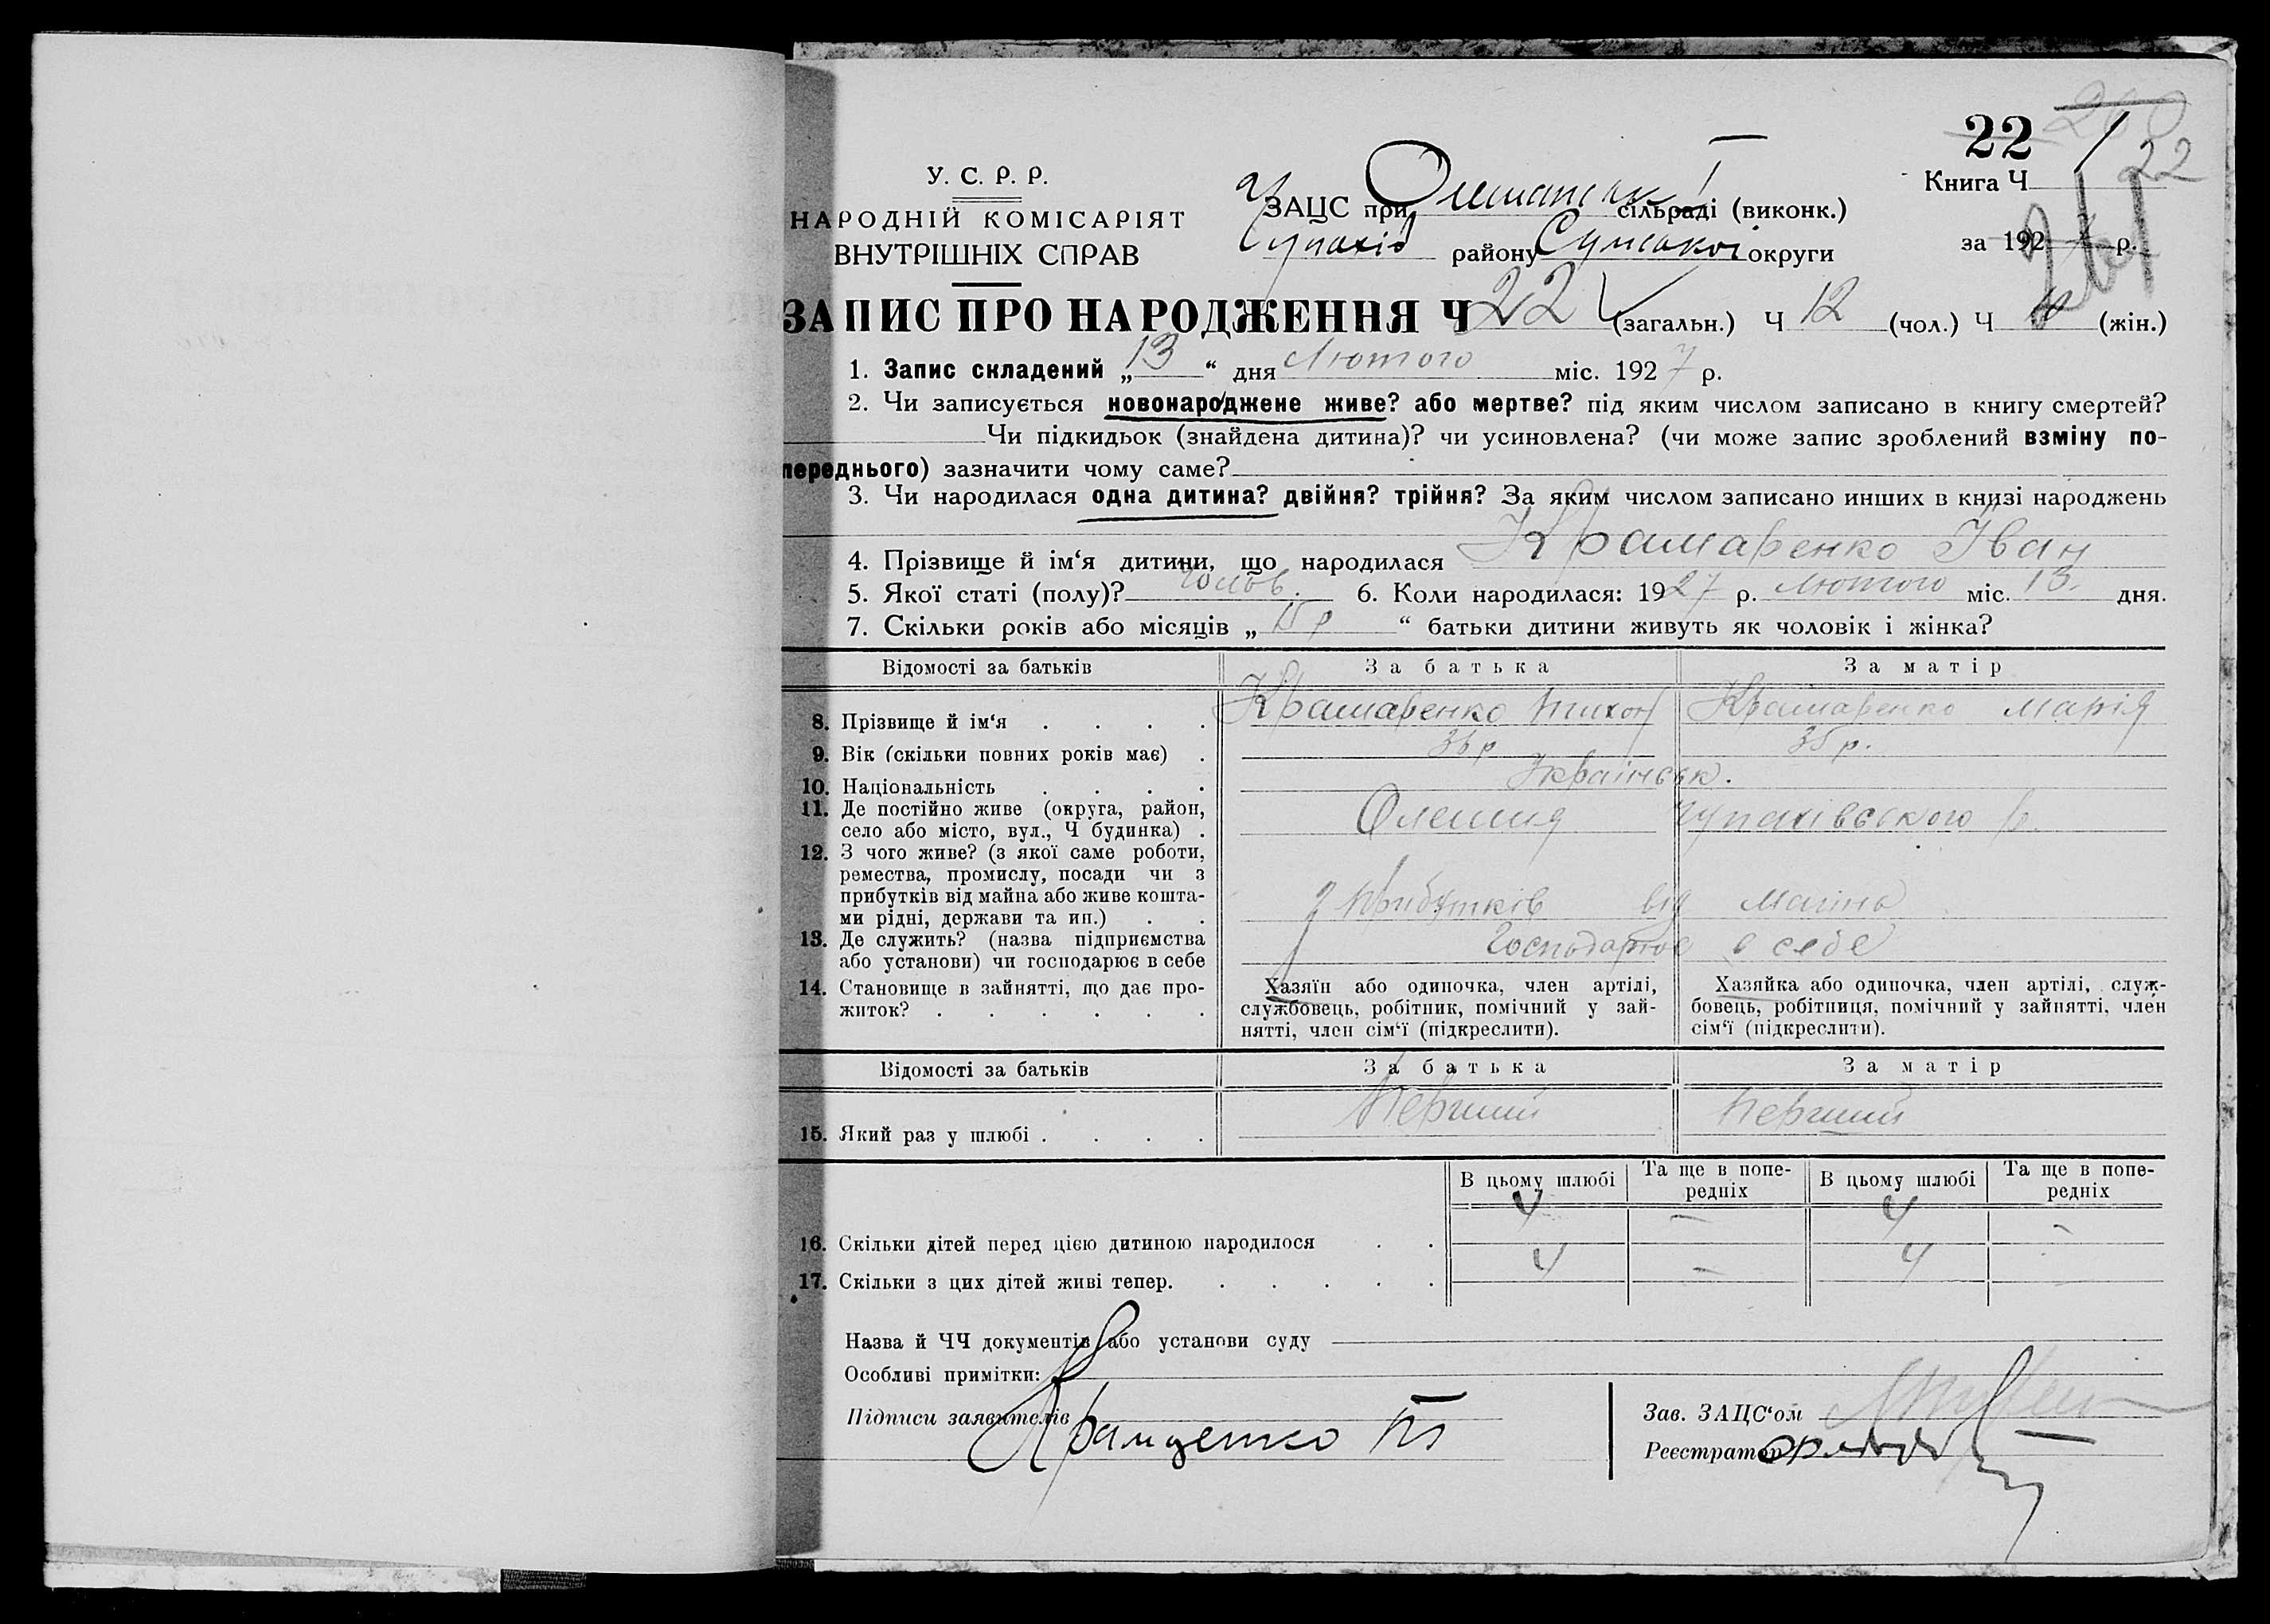 22
22
261
У. С. Р. Р.
НАРОДНІЙ КОМІСАРІЯТ
ВНУТРІШНІХ СПРАВ
Книга Ч
ЗАЦС при сільраді (виконк.)
Чупахів району Сумської округи
за 1927 р.
ЗАПИС ПРО НАРОДЖЕННЯ Ч 22 (загальн.) Ч 12 (чол.) Ч (жін.)
1. Запис складений „13“ дня Лютого міс. 1927 р.
2. Чи записується новонароджене живе? або мертве? під яким числом записано в книгу смертей?
Чи підкидьок (знайдена дитина)? чи усиновлена? (чи може запис зроблений взміну по-
переднього) зазначити чому саме?
3. Чи народилася одна дитина? двійня? трійня? За яким числом записано инших в книзі народжень
4. Прізвище й ім‘я дитини, що народилася Крамаренко Іван
5. Якої статі (полу)? чолов. 6. Коли народилася: 1927 р. Лютого міс. 13 дня.
7. Скільки років або місяців „15 р“ батьки дитини живуть як чоловік і жінка?
Відомості за батьків За батька За матір
8. Прізвище й ім‘я . . . . Крамаренко Тихон Крамаренко Марія
9. Вік (скільки повних років має) . 36 р 35 р.
10. Національність . . . . Українськ.
11. Де постійно живе (округа, район,
село або місто, вул., Ч будинка) . Олешня Чупахівського р.
12. З чого живе? (з якої саме роботи,
ремества, промислу, посади чи з
прибутків від майна або живе кошта-
ми рідні, держави та ин.) . . з прибутків від маіна
13. Де служить? (назва підприємства
або установи) чи господарює в себе Господарює в себе
14. Становище в зайнятті, що дає про-
житок? . . . . . .
Хазяїн або одиночка, член артілі,
службовець, робітник, помічний у зай-
нятті, член сім‘ї (підкреслити).
Хазяйка або одиночка, член артілі, служ-
бовець, робітниця, помічний у зайнятті, член
сім‘ї (підкреслити).
Відомості за батьків За батька За матір
15. Який раз у шлюбі . . . . Перший Перший
В цьому шлюбі Та ще в попе-
редніх В цьому шлюбі Та ще в попе-
редніх
16. Скільки дітей перед цією дитиною народилося . . 4 – 4 –
17. Скільки з цих дітей живі тепер. . . . . . 4 – 4 –
Назва й ЧЧ документів або установи суду
Особливі примітки:
Підписи заявителів
Зав. ЗАЦС‘ом
Реєстратор